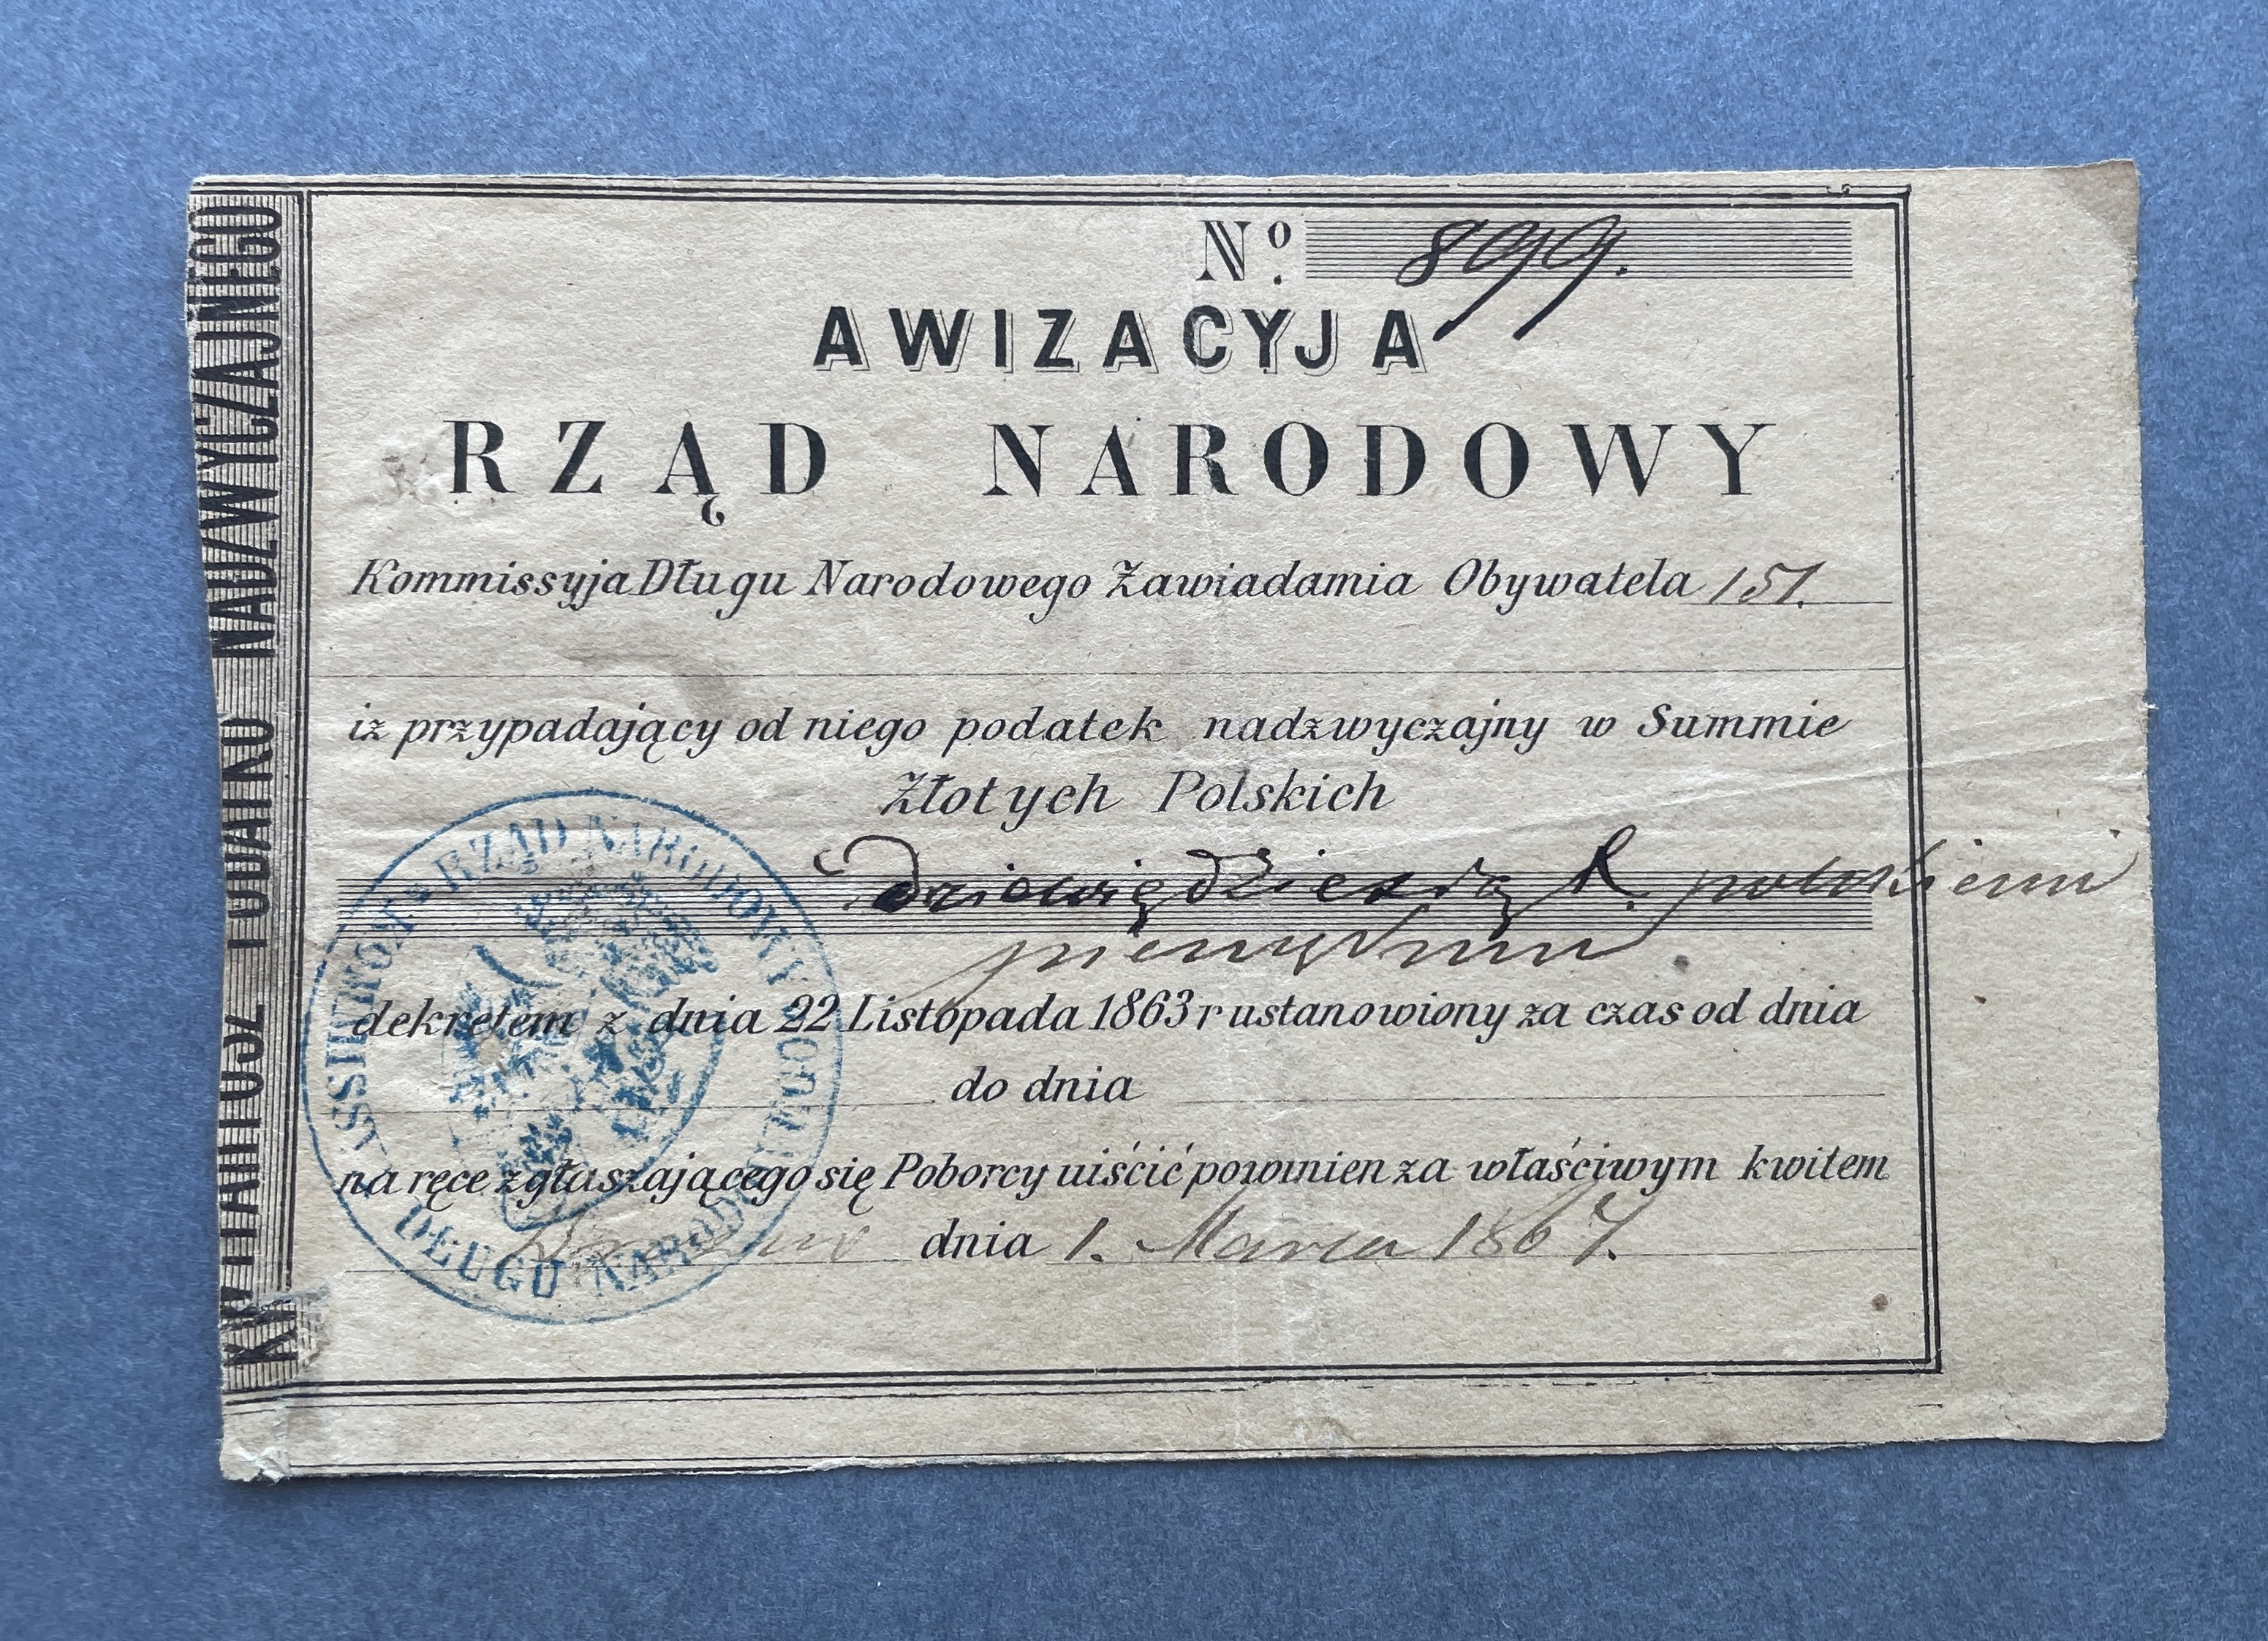 No. 899.
AWIZACYJA
RZĄD NARODOWY
Kommissyja Długu Narodowego Zawiadamia Obywatela 151.
iz przypadający od niego podatek nadzwyczajny w Summie
Złotych Polskich
Dziewiędziesiąt R. polskiemi
pieniędzmi
dekretem z dnia 22 Listopada 1863 r ustanowiony za czas od dnia
do dnia
na ręce zgłaszającego się Poborcy uiścić powinien za właściwym kwitem
dnia 1. Marca 1864.
KWITARIUSZ PODATKU NADZWYCZAJNEGO
RZĄD NARODOWY
DŁUGU NARODO